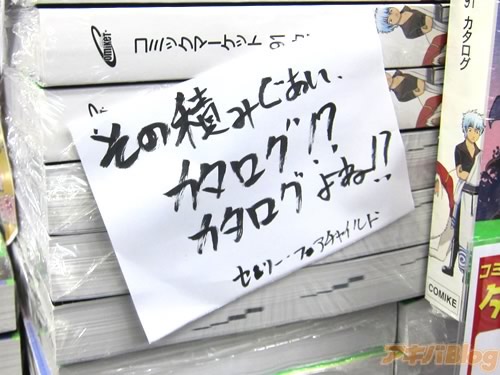 COMIKET
コミックマーケット 91 カ
その積みじあい、
カタログ!?
カタログよね!?
セルリー・フェアチャイルド
91 カタログ
COMIKE
コミ
アキバBlog